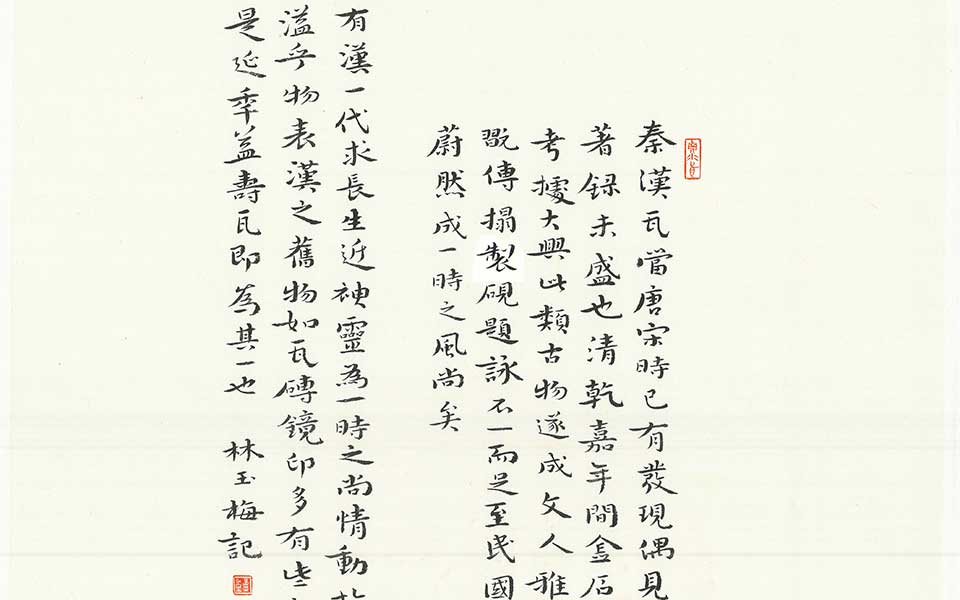 秦漢瓦當唐宋時已有發現偶見
著録未盛也清乾嘉年間金石
考據大興此類古物遂成文人雅
翫傳搨製硯題詠不一而足至民國
蔚然成一時之風尚矣
有漢一代求長生近神靈為一時之尚情動於
溢乎物表漢之舊物如瓦磚鏡印多有此
是延年益壽瓦即為其一也 林玉梅記